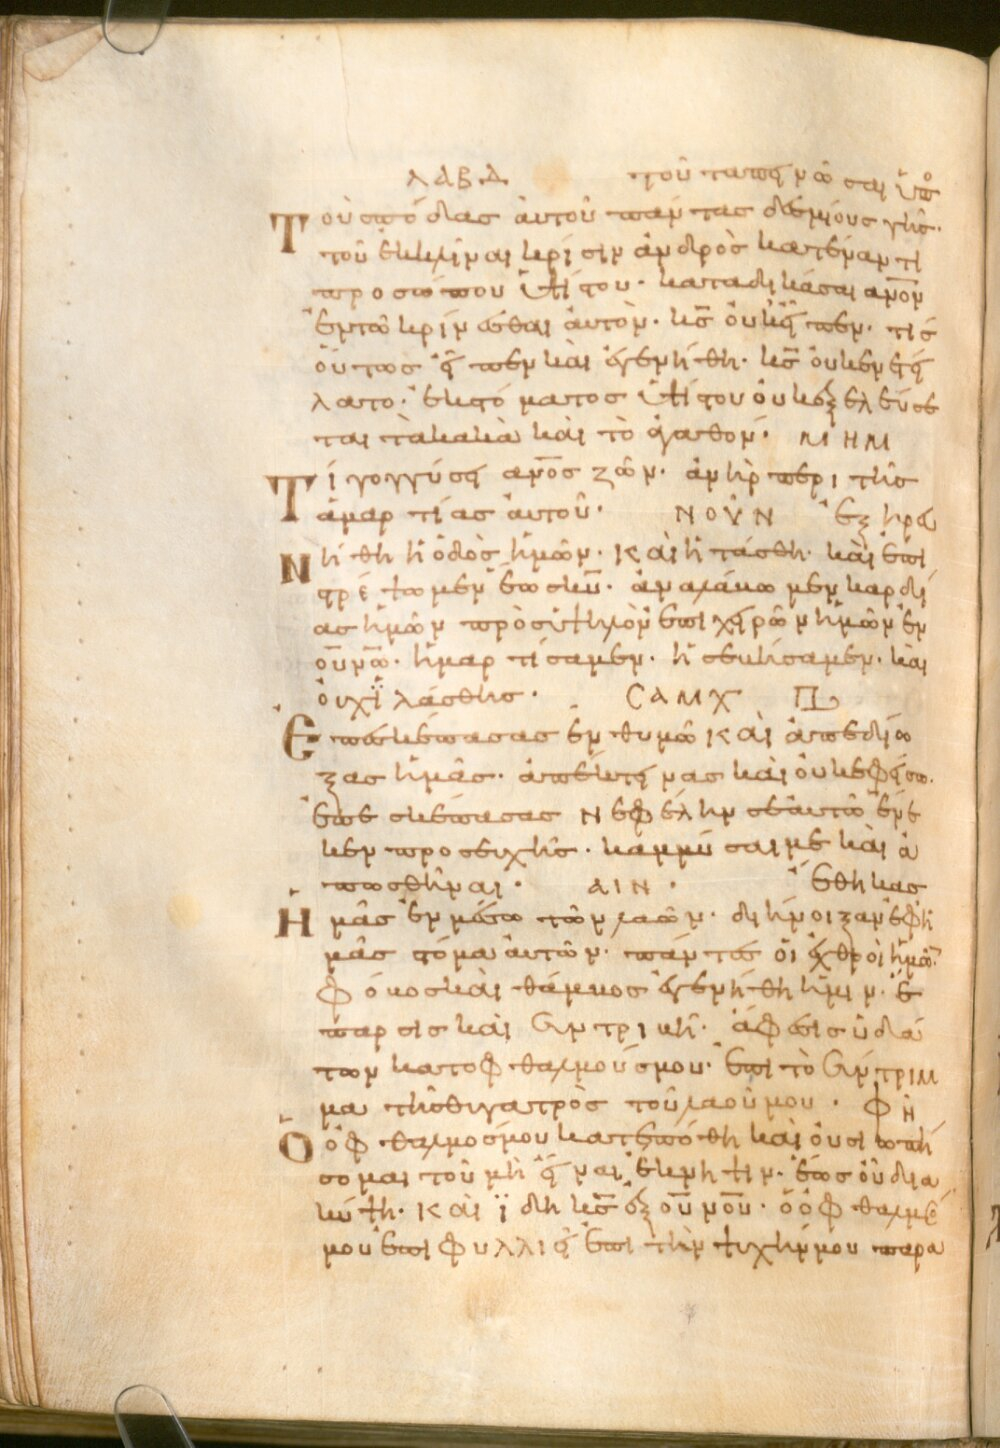 ΛΑΒΔ τοῦ ταπεινῶσαι ὑπὸ
Τοὺσ πόδασ ἀυτοῦ πάντασ δεσμίουσ γῆσ·
τοῦ ἐκκλίναι κρίσιν ἀνδρὸσ κατέναντι
προσώπου ὑψίστου· καταδικάσαι ανον
ἐν τῶ κρίνεσθαι ἀυτὸν· κσ ὀυκ εἶπεν· τίσ
ὅυτωσ εἶπεν καὶ ἐγενήθη· κσ ὀυκ ενετεί
λατο· ἐκ στόματοσ ὑψίστου ὀυκ ἐξελεύσε
ται τὰ κακὰ καὶ τὸ ἀγαθον· ΜΗΜ
Τί γογγύσει ανοσ ζῶν· ἀνὴρ περι τῆσ
ἁμαρτίασ ἀυτοῦ· ΝΟῪΝ ἐξηρευ
Νήθη ἡ ὁδὸσ ἡμῶν· καὶ ἠτάσθη· καὶ ἐπι
στρέψωμεν ἕωσ κυ· ἀναλάβωμεν καρδί
ασ ἡμῶν πρὸσ ὑψηλὸν ἐπι χειρῶν ἡμῶν ἐν
ουνῶ· ἡμαρτίσαμεν· ἠσεβήσαμεν· καὶ
ὀυχ ϊλάσθησ· ϹΑΜΧ
Ἐπεσκέπασασ ἐν θυμῶ καὶ ἀπεδίω
ξασ ἡμᾶσ· ἀπέκτεινασ καὶ ὀυκ εφείσω·
ἐπεσκέπασασ νεφέλην σεαυτῶ ἕνε
κεν προσευχῆσ· καμμύσαι με καὶ ἀ
πωσθῆναι· ΑΙΝ· ἔθηκασ
Ἡμᾶσ ἐν μέσω τῶν λαῶν· διήνοιξαν ἐφ ἡ
μᾶσ στόμα ἀυτῶν· πάντεσ ὁι ἐχθροὶ ἡμῶν·
φόβοσ καὶ θάμβοσ ἐγενήθη ἡμιν· ἔ
παρσισ καὶ συντριβῆ· ἀφέσισ ὑδά
των κατ οφθαλμούσ μου· ἐπὶ τὸ σύντριμ
μα τῆσ θυγατρὸσ τοῦ λαοῦ μου· ΦῊ
Ὁ ὀφθαλμοσ μου κατεπόθη καὶ ὀυ σιωπή
σομαι τοῦ μὴ εἶναι ἔκνηψιν· ἕωσ ὁῦ δια
κύψη· καὶ ϊδη κσ ἐξ ουνου· ὁ ὀφθαλμό
μου ἐπιφυλλιεῖ ἐπὶ τὴν ψυχήν μου παρα